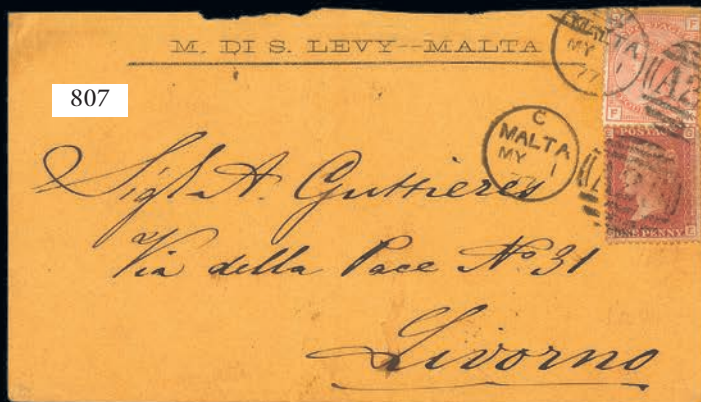 M. DI S. LEVY--MALTA
807
MALTA
MY 1
77
C
MALTA
MY 1
77
A2
F
F
POSTAGE
ONE PENNY
Sigr. A. Guttieres
Via della Pace No. 31
Livorno